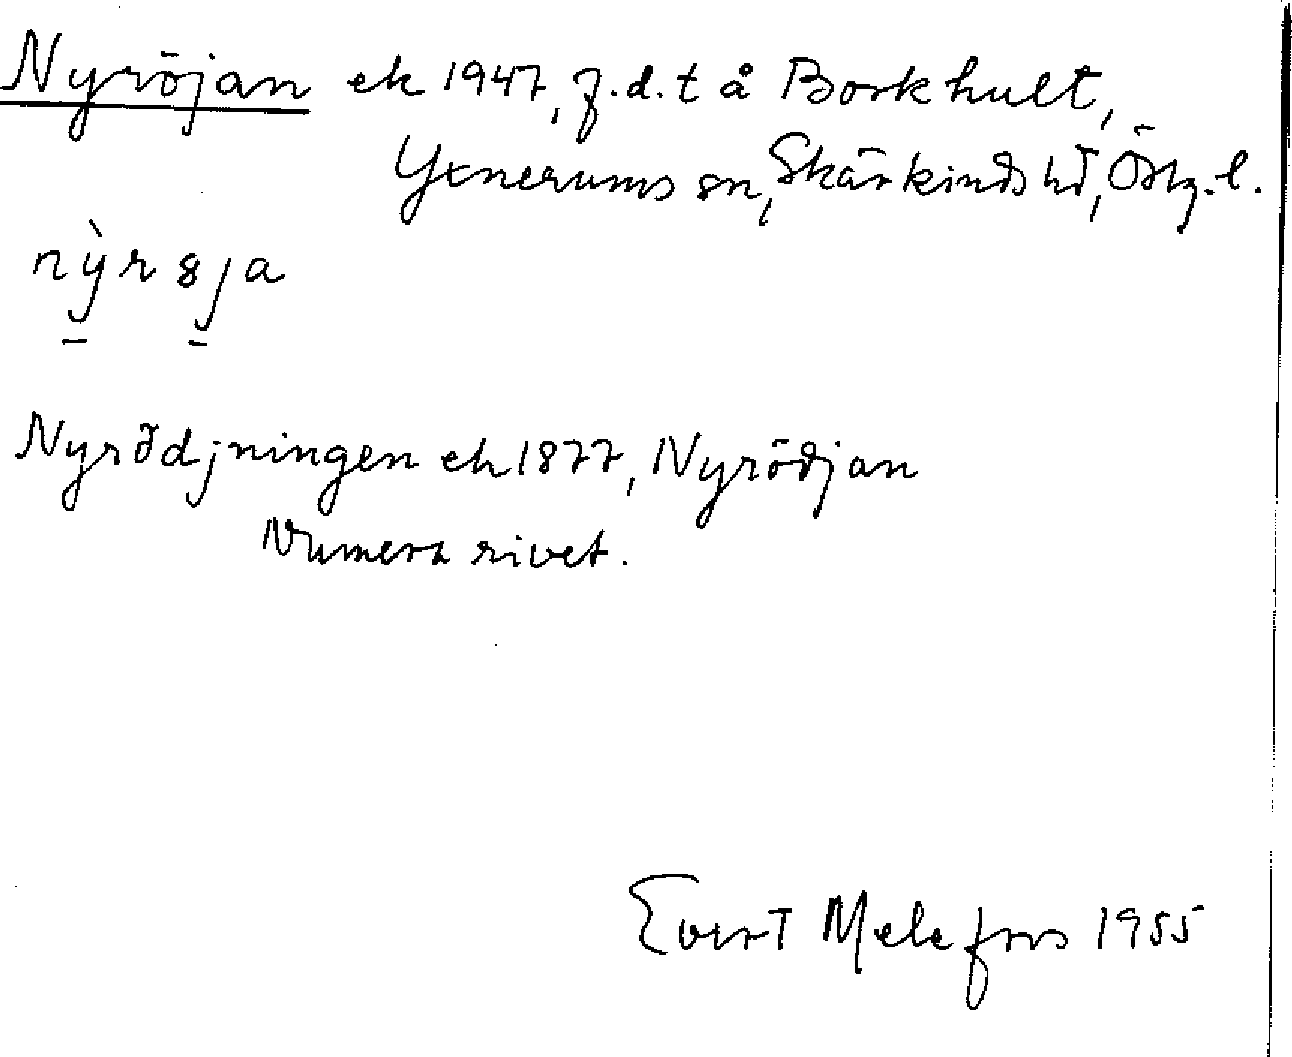 Nyröjan ek 1947, f.d.t å Borkhult,
Yxnerums sn, Skärkinds hd, Östg.l.
nỳrȣja
Nyrödjningen ek 1877, Nyrödjan
Numera rivet.
Evert Melefors 1955